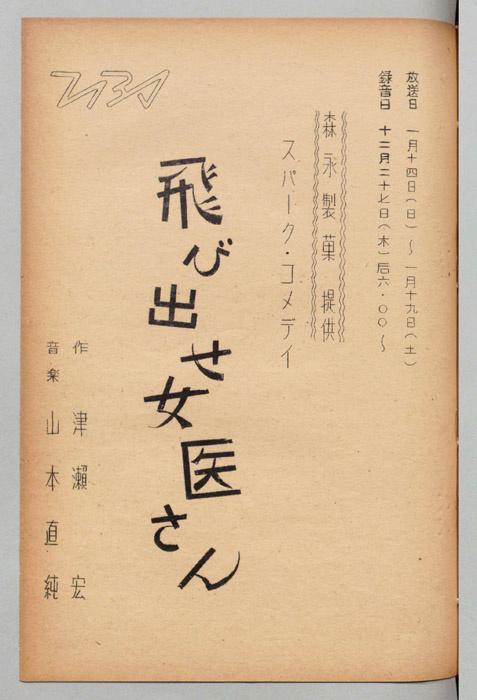 放送日 一月十四日(日)～一月十九日(土)
録音日 十二月二十七日(木)后六・〇〇～
森永製菓提供
スパーク・コメデイ
飛び出せ女医さん
作 津瀬宏
音楽 山本直純